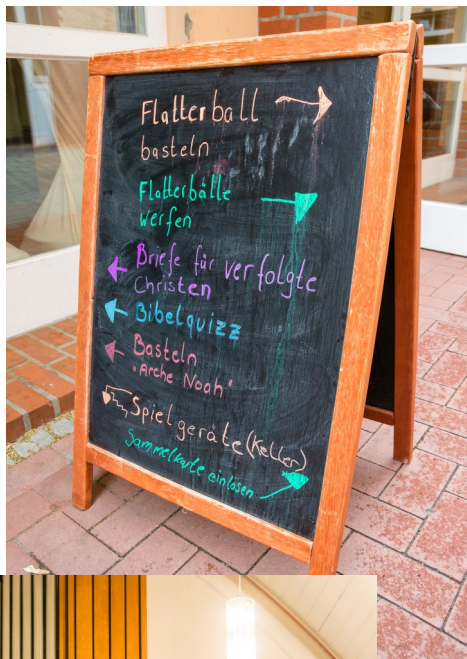 Flatterball
basteln
Flatterbälle
werfen
Briefe für verfolgte
Christen
Bibelquizz
Basteln
"Arche Noah"
Spielgeräte (Keller)
Sammelkarte einlösen